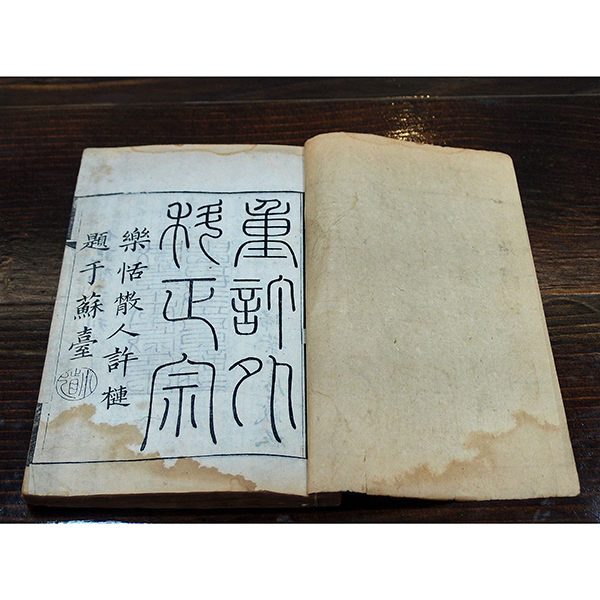 重訂外
科正宗
樂恬散人許槤
題于蘇臺